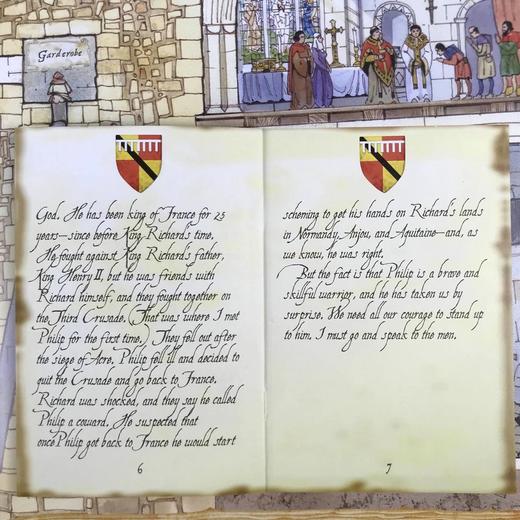 Garderobe
God. He has been king of France for 25
years—since before King Richard's time.
He fought against King Richard's father,
King Henry II, but he was friends with
Richard himself, and they fought together on
the Third Crusade. (That was where I met
Philip for the first time.) They fell out after
the siege of Acre. Philip fell ill and decided to
quit the Crusade and go back to France.
Richard was shocked, and they say he called
Philip a coward. He suspected that
once Philip got back to France he would start
6
scheming to get his hands on Richard's lands
in Normandy, Anjou, and Aquitaine—and, as
we know, he was right.
But the fact is that Philip is a brave and
skillful warrior, and he has taken us by
surprise. We need all our courage to stand up
to him. I must go and speak to the men.
7